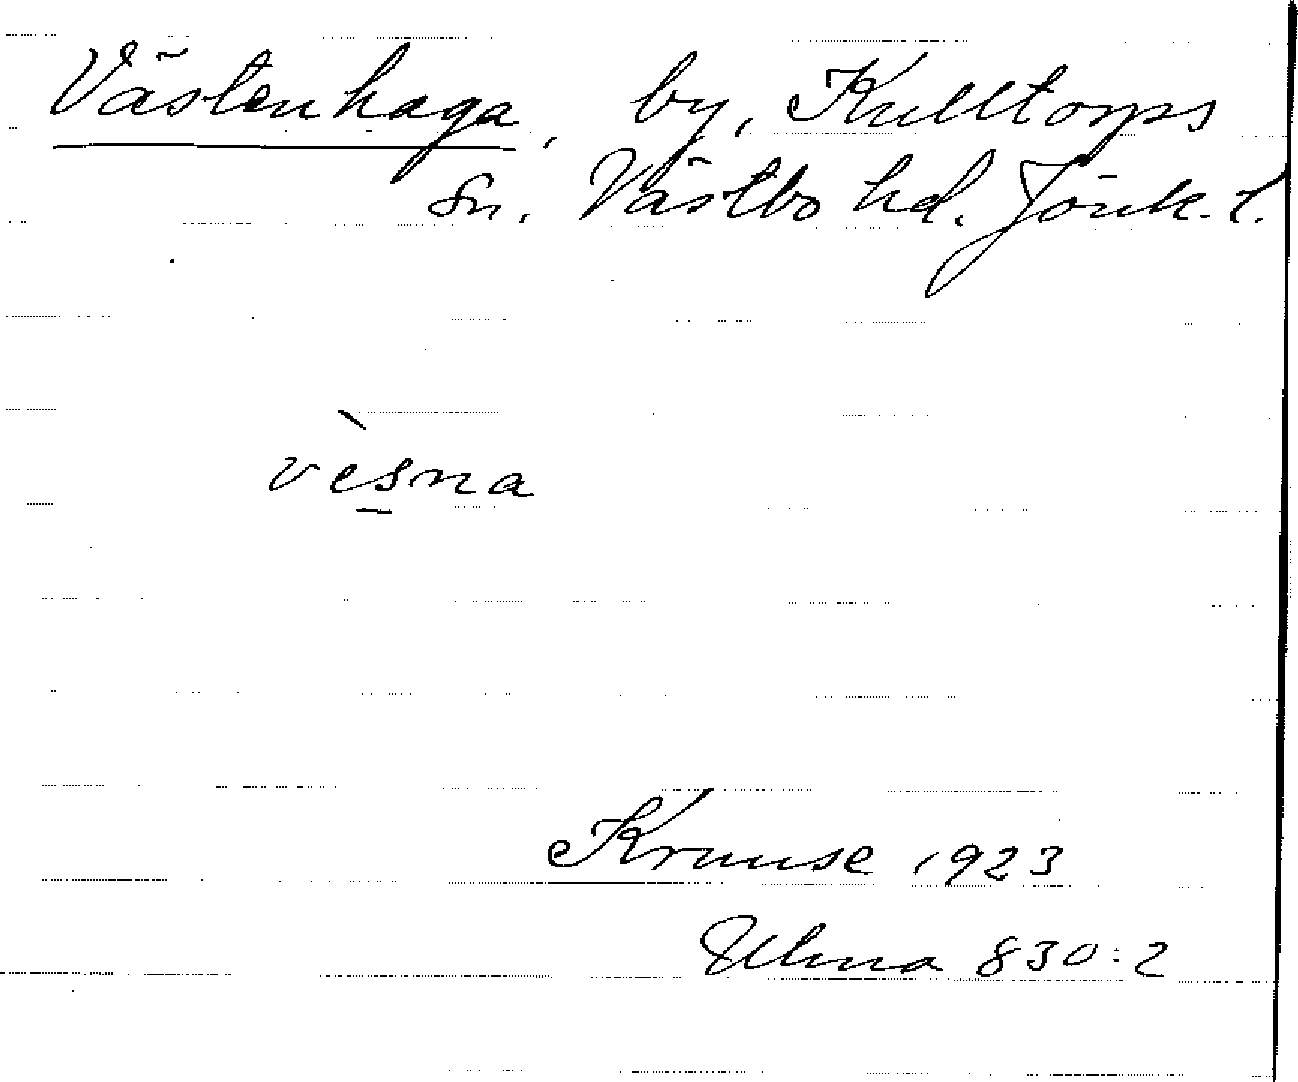 Västenhaga, by, Kulltorps
sn. Västbo hd. Jönk. l.
vèsna
Kruuse 1923
Ulma 830:2